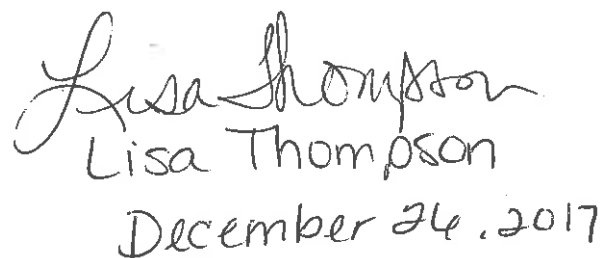 Lisa Thompson
Lisa Thompson
December 26, 2017